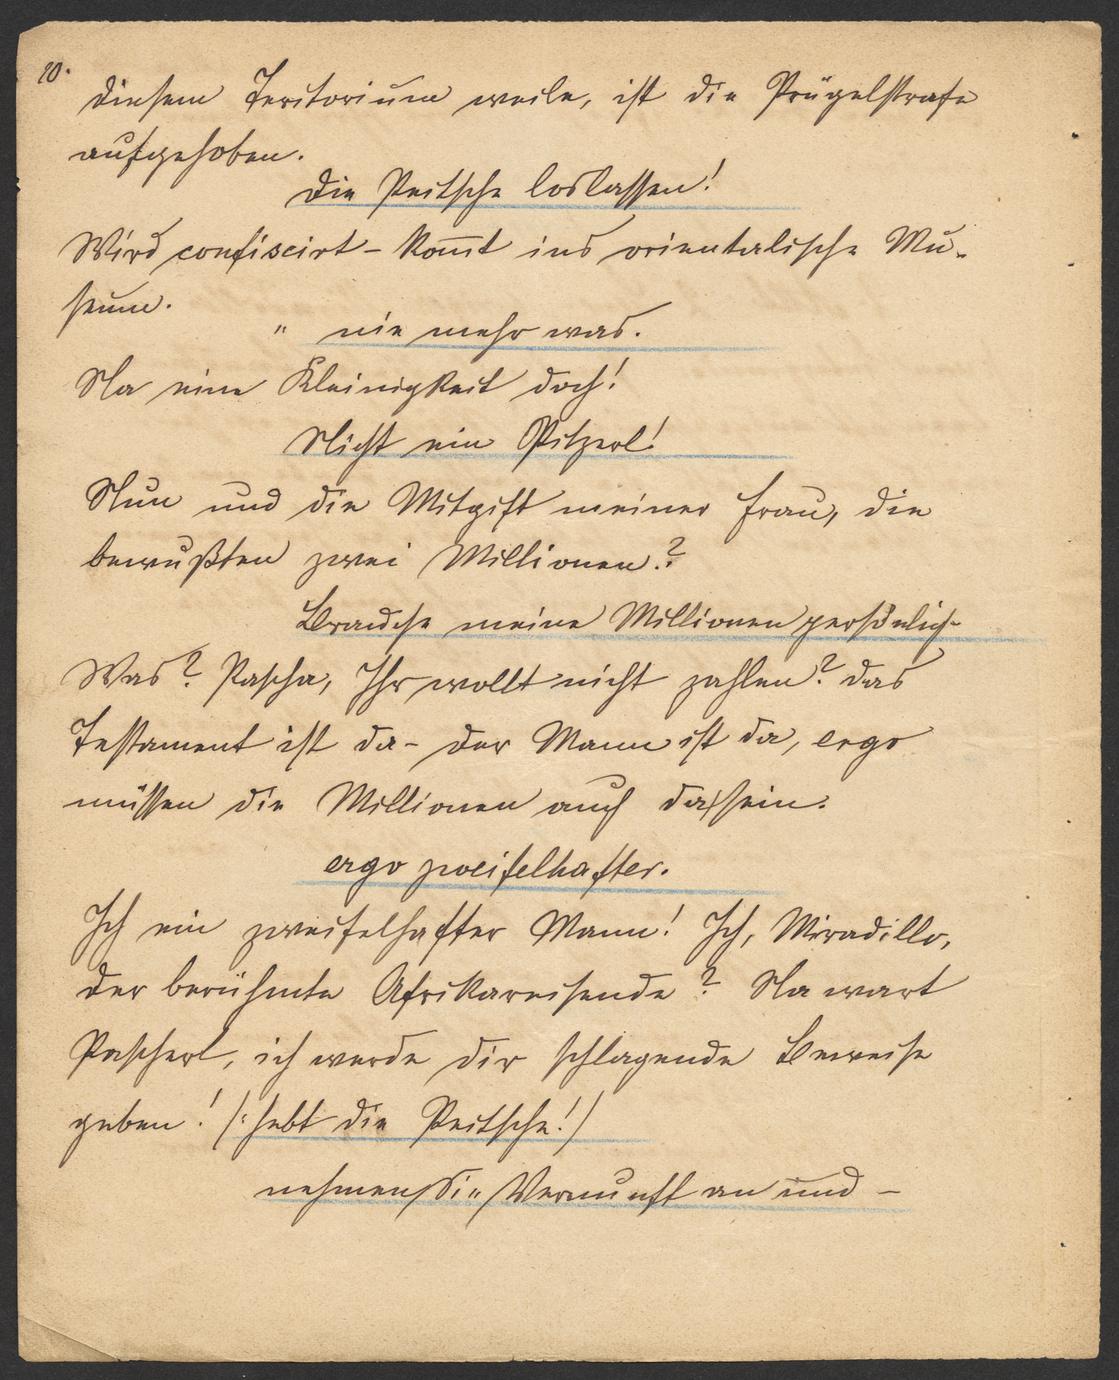 10.
diesem Teritorium weile, ist die Prügelstrafe
aufgehoben.
Die Peitsche loslassen!
Wird confiscirt - kom̅t ins orientalische Mu-
seum.
" nie mehr was.
Na eine Kleinigkeit doch!
Nicht ein Pitzerl!
Nun und die Mitgift meiner Frau, die
bewußten zwei Millionen?
Brauche meine Millionen persönlich
Was? Pascha, Ihr wollt nicht zahlen? das
Testament ist da - der Mann ist da, ergo
müssen die Millionen auch da sein.
ergo zweifelhafter.
Ich ein zweifelhafter Mann! Ich, Miradillo,
der berühmte Afrikareisende? Na wart
Pascherl, ich werde dir schlagende Beweise
geben! (: hebt die Peitsche!)
nehmen Sie Vernunft an und -